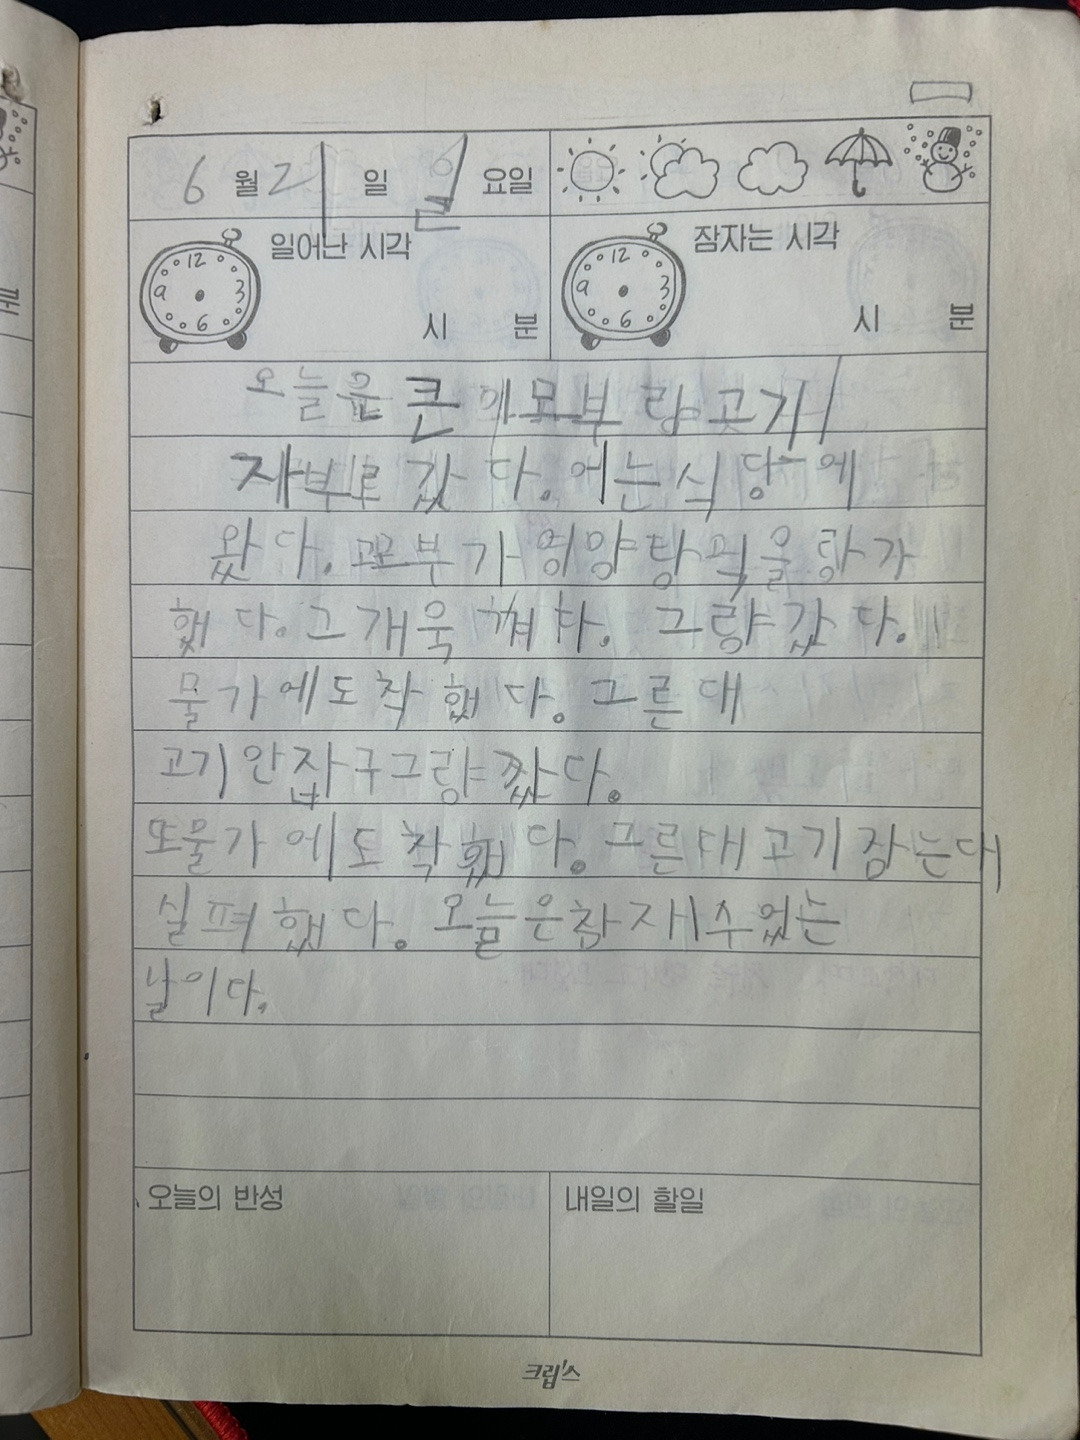 6 월 21 일 일 요일
일어난 시각
12
9 3
6
시 분
잠자는 시각
12
9 3
6
시 분
오늘은 큰 고모부 랑 고기
자부로 갔 다. 어는 식 당 에
왔 다. 고모부 가 영양탕 먹을 랑가
했 다. 그 개욱 다. 그량 갔 다.
물 가 에 도 착 했 다. 그른 대
고기 안 잡구 그량 깠 다.
또 물 가 에 도 착 했 다. 그른 대 고기 잠 는 대
실 펴 했 다. 오늘 은 참 재 수 없 는
날 이 다.
오늘의 반성
내일의 할일
크립스